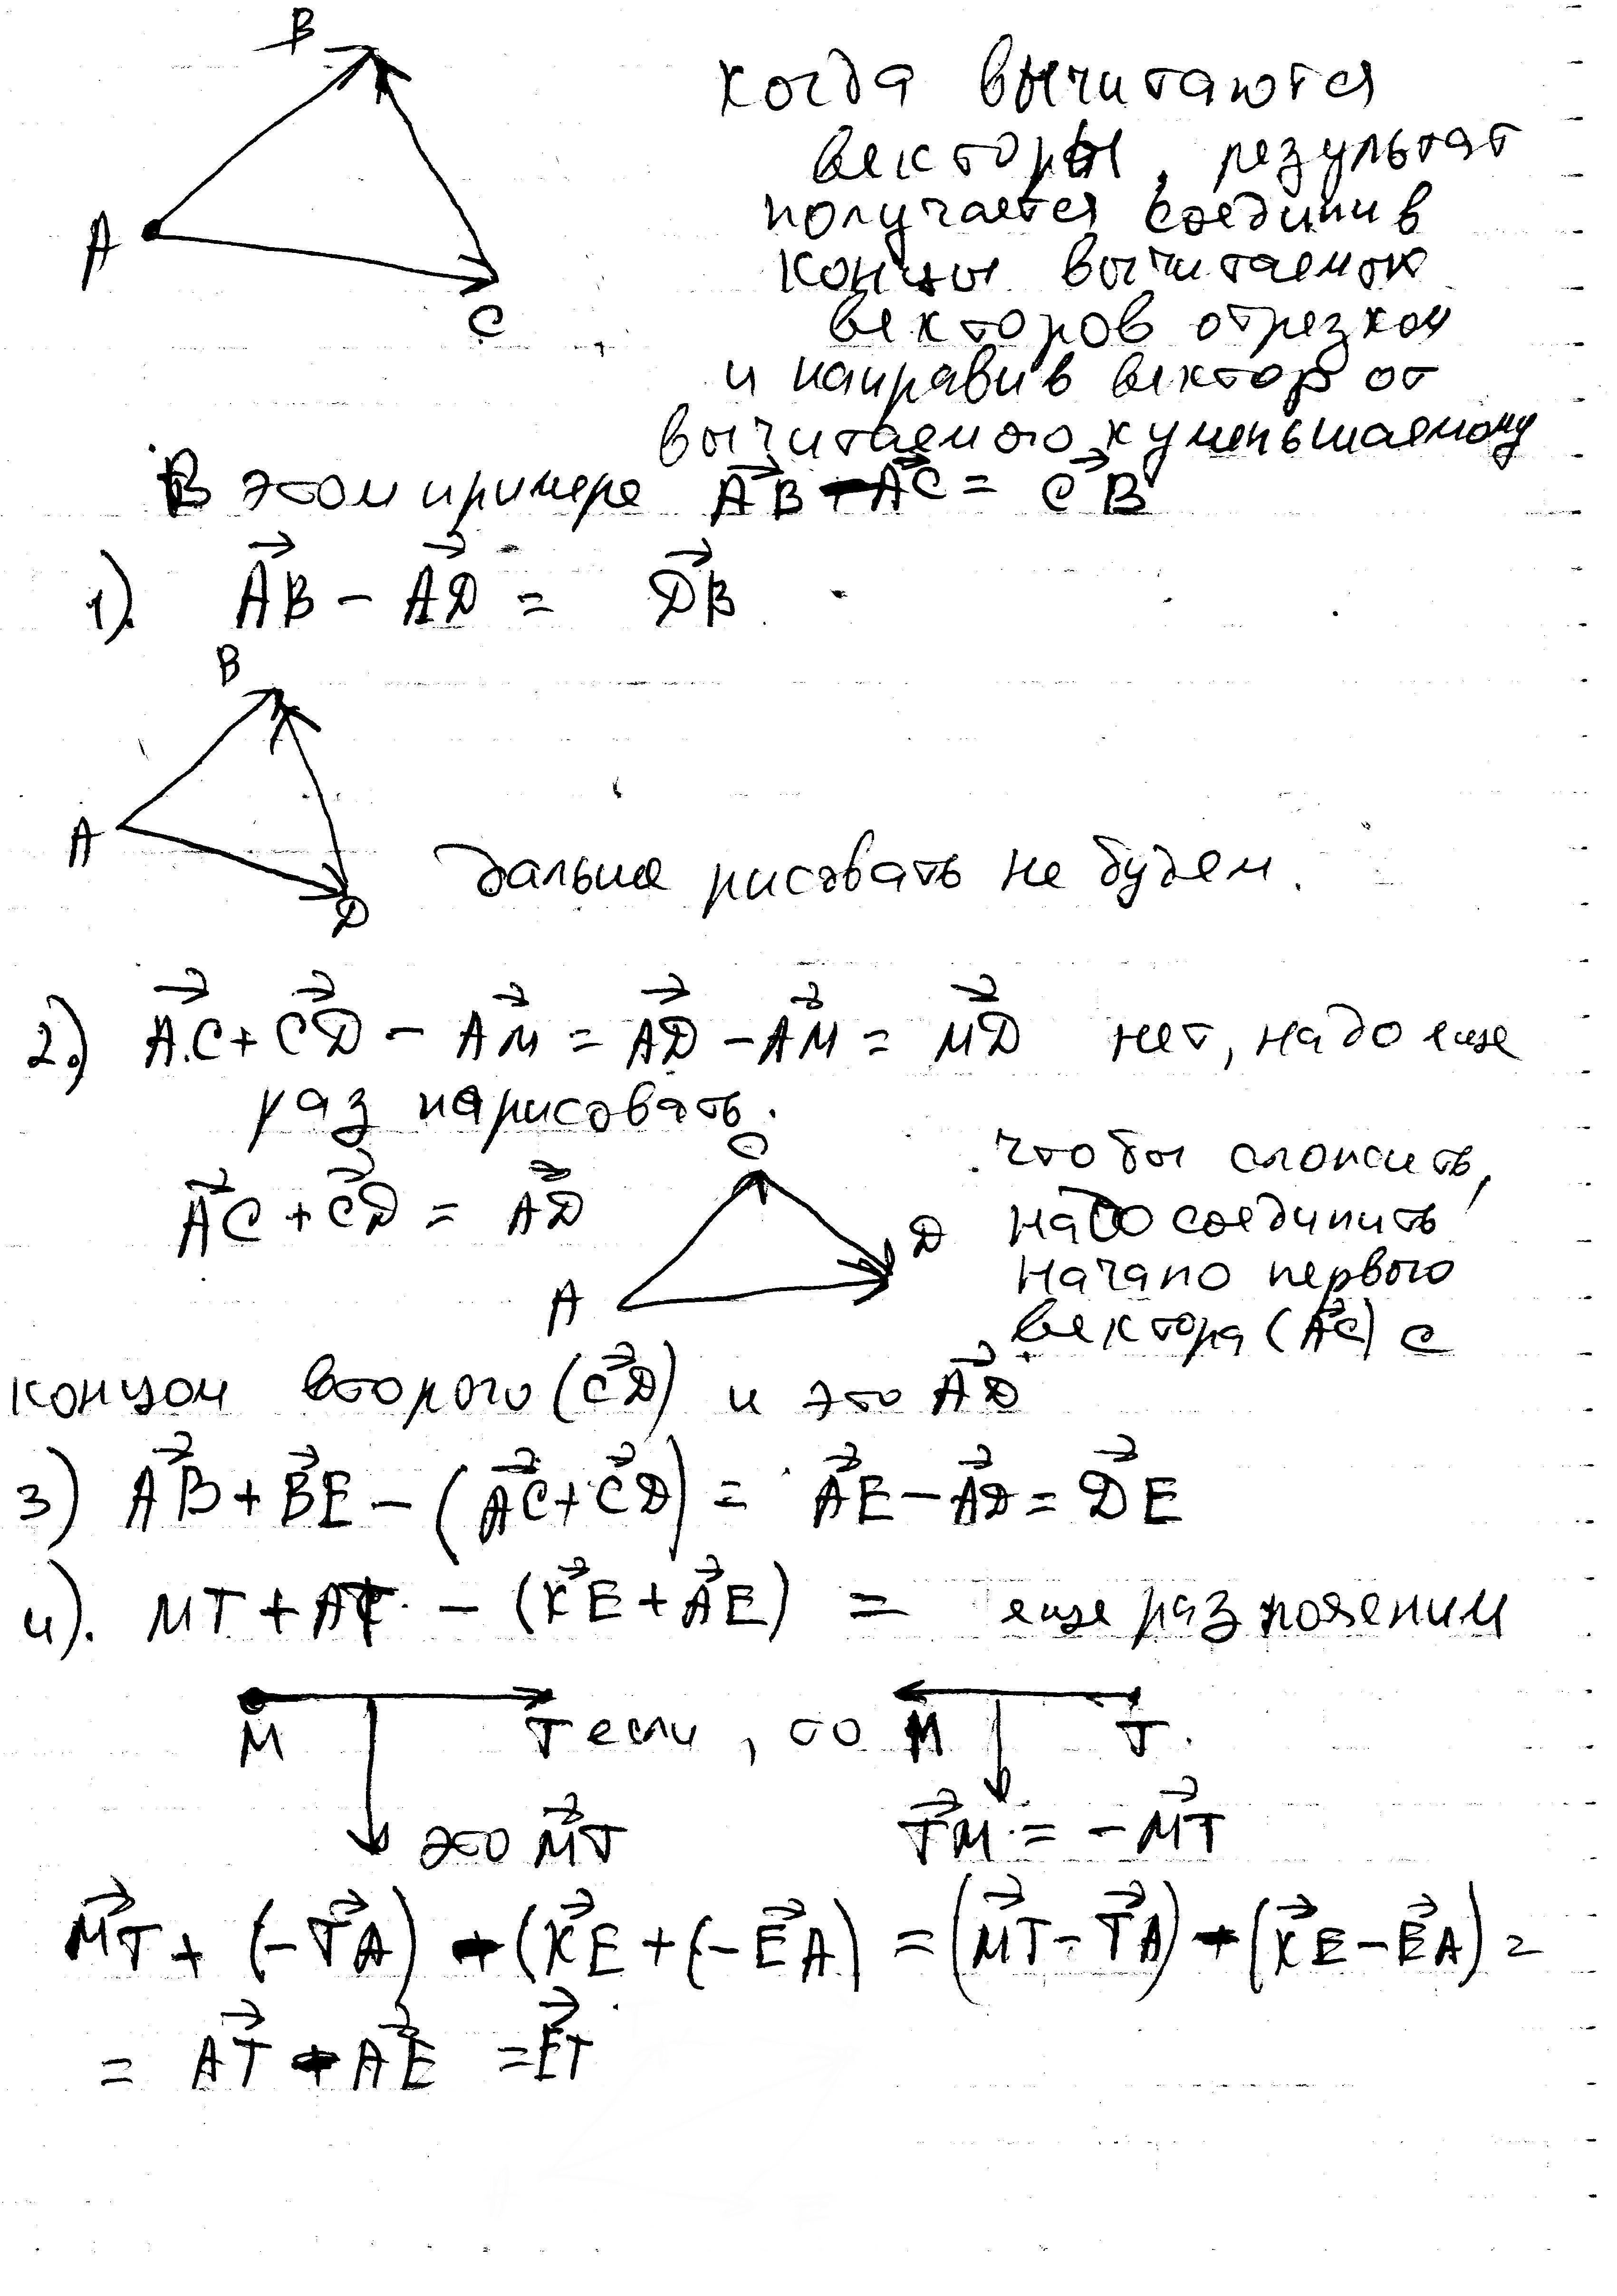 B
A
C
когда вычитаются
векторы, результат
получается соединив
концы вычитаемых
векторов отрезком
и направив вектор от
вычитаемого к уменьшаемому
В этом примере AB - AC = CB
1). AB - AD = DB
B
A
D
дальше рисовать не будем.
2.) AC + CD - AM = AD - AM = MD нет, надо еще
раз нарисовать.
AC + CD = AD
C
A
D
чтобы сложить,
надо соединить
начало первого
вектора (AC) с
концом второго (CD) и это AD
3) AB + BE - (AC + CD) = AE - AD = DE
4). MT + AT - (KE + AE) = еще раз поясним
M T если, то M T.
это MT TM = - MT
MT + (-TA) - (KE + (-EA) = (MT - TA) - (KE - EA) =
= AT - AE = ET